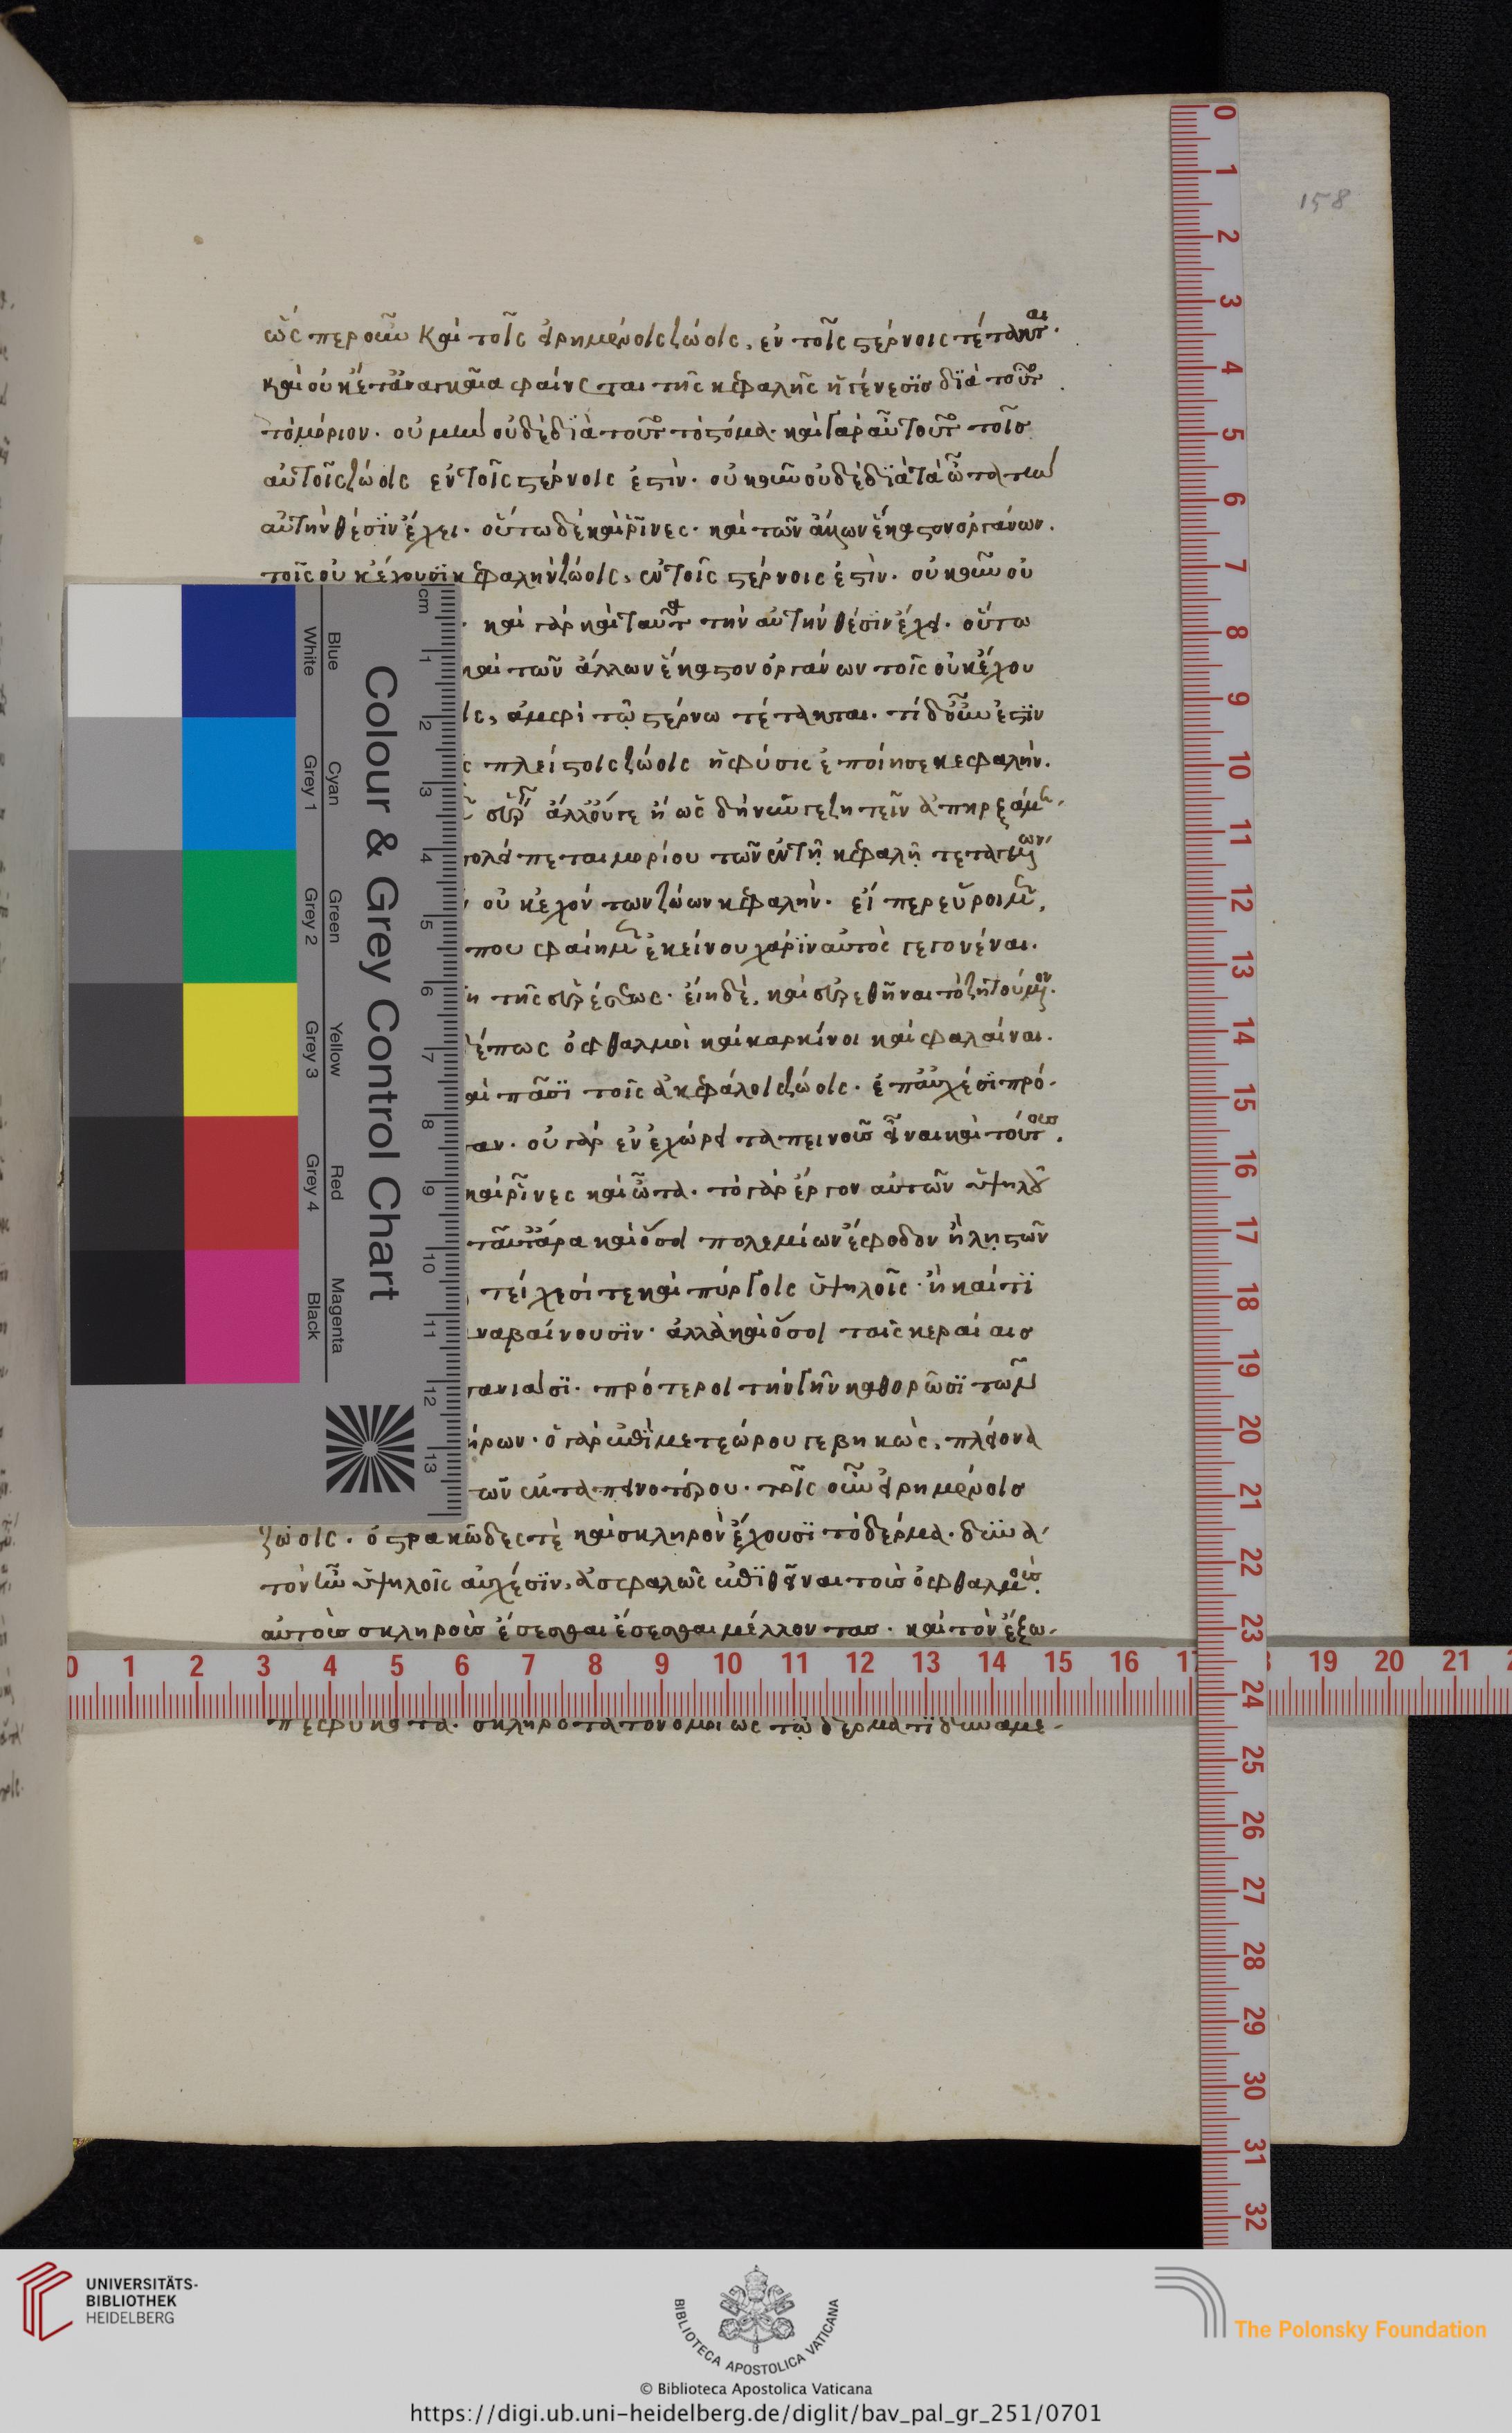 158
ὥσπερ οὖν καὶ τοῖς εἰρημένοις ζώοις, ἐν τοῖς στέρνοις τέτακται.
καὶ οὐκέτ' ἀναγκαία φαίνεται τῆς κεφαλῆς ἡ γένεσις διὰ τοῦτο
τὸ μόριον. οὐ μὴν οὐδὲ διὰ τοῦτο τὸ στόμα. καὶ γὰρ αὖ τοῦτο τοῖς
αὐτοῖς ζώοις ἐν τοῖς στέρνοις ἐστίν. οὐκ οὖν οὐδὲ διὰ τὰ ὦτα τὴν
αὐτὴν θέσιν ἔχει. οὕτω δὲ καὶ ῥῖνες. καὶ τῶν ἄλλων ἕκαστον ὀργάνων.
τοῖς οὐκ ἔχουσι κεφαλὴν ζώοις, ἐν τοῖς στέρνοις ἐστίν. οὐκ οὖν οὐ
καὶ γὰρ καὶ ταῦτα τὴν αὐτὴν θέσιν ἔχει. οὕτω
καὶ τῶν ἄλλων ἕκαστον ὀργάνων τοῖς οὐκ ἔχου
ἀμφὶ τῷ στέρνω τέτακται. τί δ' οὖν ἐστιν
πλείστοις ζώοις ἡ φύσις ἐποίησε κεφαλήν.
ἄλλό τε ἢ ὡς δὴ νῦν γε ζητεῖν ἀπηρξάμην
μορίου τῶν ἐν τῇ κεφαλῇ τεταγμένων
οὐκ ἐχόντων ζώων κεφαλήν. εἴπερ εὕροιμεν,
που φαίημεν ἐκείνου χάριν αὐτὸς γεγονέναι.
τῆς εὑρέσεως. εἴη δὲ, καὶ εὑρεθῆναι τὸ ζητούμενον.
ὀφθαλμοὶ καὶ καρκίνοι καὶ φαλαίναι.
πᾶσι τοῖς ἀκεφάλοις ζώοις. ἐπ' αὐχέσι πρό-
οὐ γὰρ ἐνεχώρει ταπεινοῖς εἶναι καὶ τούτοις.
καὶ ῥῖνες καὶ ὦτα. τὸ γὰρ ἔργον αὐτῶν ὑψηλοῦ
ταῦτ' ἄρα καὶ ὅσοι πολεμίων ἔφοδον ἢ λῃστῶν
τείχεσί τε καὶ πύργοις ὑψηλοῖς. ἢ καί τι
ἀναβαίνουσιν. ἀλλὰ καὶ ὅσοι ταῖς κεραίαις
πρότεροι τὴν γῆν καθορῶσι τῶν
ὁ γὰρ ἐπὶ μετεώρου βεβηκὼς, πλείονα
τῶν ἐν ταπεινοτέρου. τοῖς οὖν εἰρημένοις
ζώοις. ὀστρακῶδές τε καὶ σκληρὸν ἔχουσι τὸ δέρμα. δυνα-
τὸν ἦν ὑψηλοῖς αὐχέσιν, ἀσφαλῶς ἐπιθεῖναι τοὺς ὀφθαλμούς.
αὐτοὺς σκληροὺς ἔσεσθαι ἔσεσθαι μέλλοντας. καὶ τὸν ἔξω-
πεφυκότα. σκληρότατον ὁμοίως τῷ δέρματι δυναμέ-
Colour & Grey Control Chart
Blue Cyan Green Yellow Red Magenta
White Grey 1 Grey 2 Grey 3 Grey 4 Black
cm 1 2 3 4 5 6 7 8 9 10 11 12 13
0 1 2 3 4 5 6 7 8 9 10 11 12 13 14 15 16 17 18 19 20 21 22 23 24 25 26 27 28 29 30 31 32
0 1 2 3 4 5 6 7 8 9 10 11 12 13 14 15 16 19 20 21
UNIVERSITÄTS-
BIBLIOTHEK
HEIDELBERG
BIBLIOTECA APOSTOLICA VATICANA
The Polonsky Foundation
© Biblioteca Apostolica Vaticana
https://digi.ub.uni-heidelberg.de/diglit/bav_pal_gr_251/0701